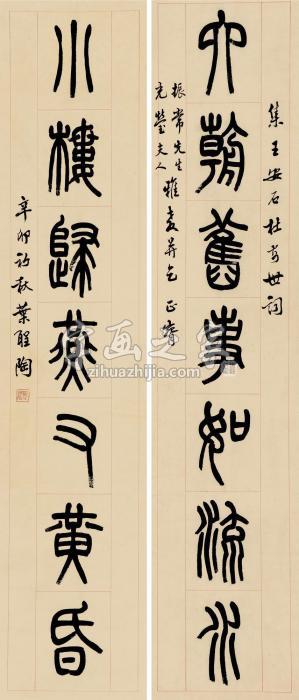 集王安石杜安世詞
六朝舊事如流水
振常先生
夫人
雅教并乞 正
小樓歸燕又黃昏
辛卯初秋葉聖陶
字画之家
zihuazhijia.com